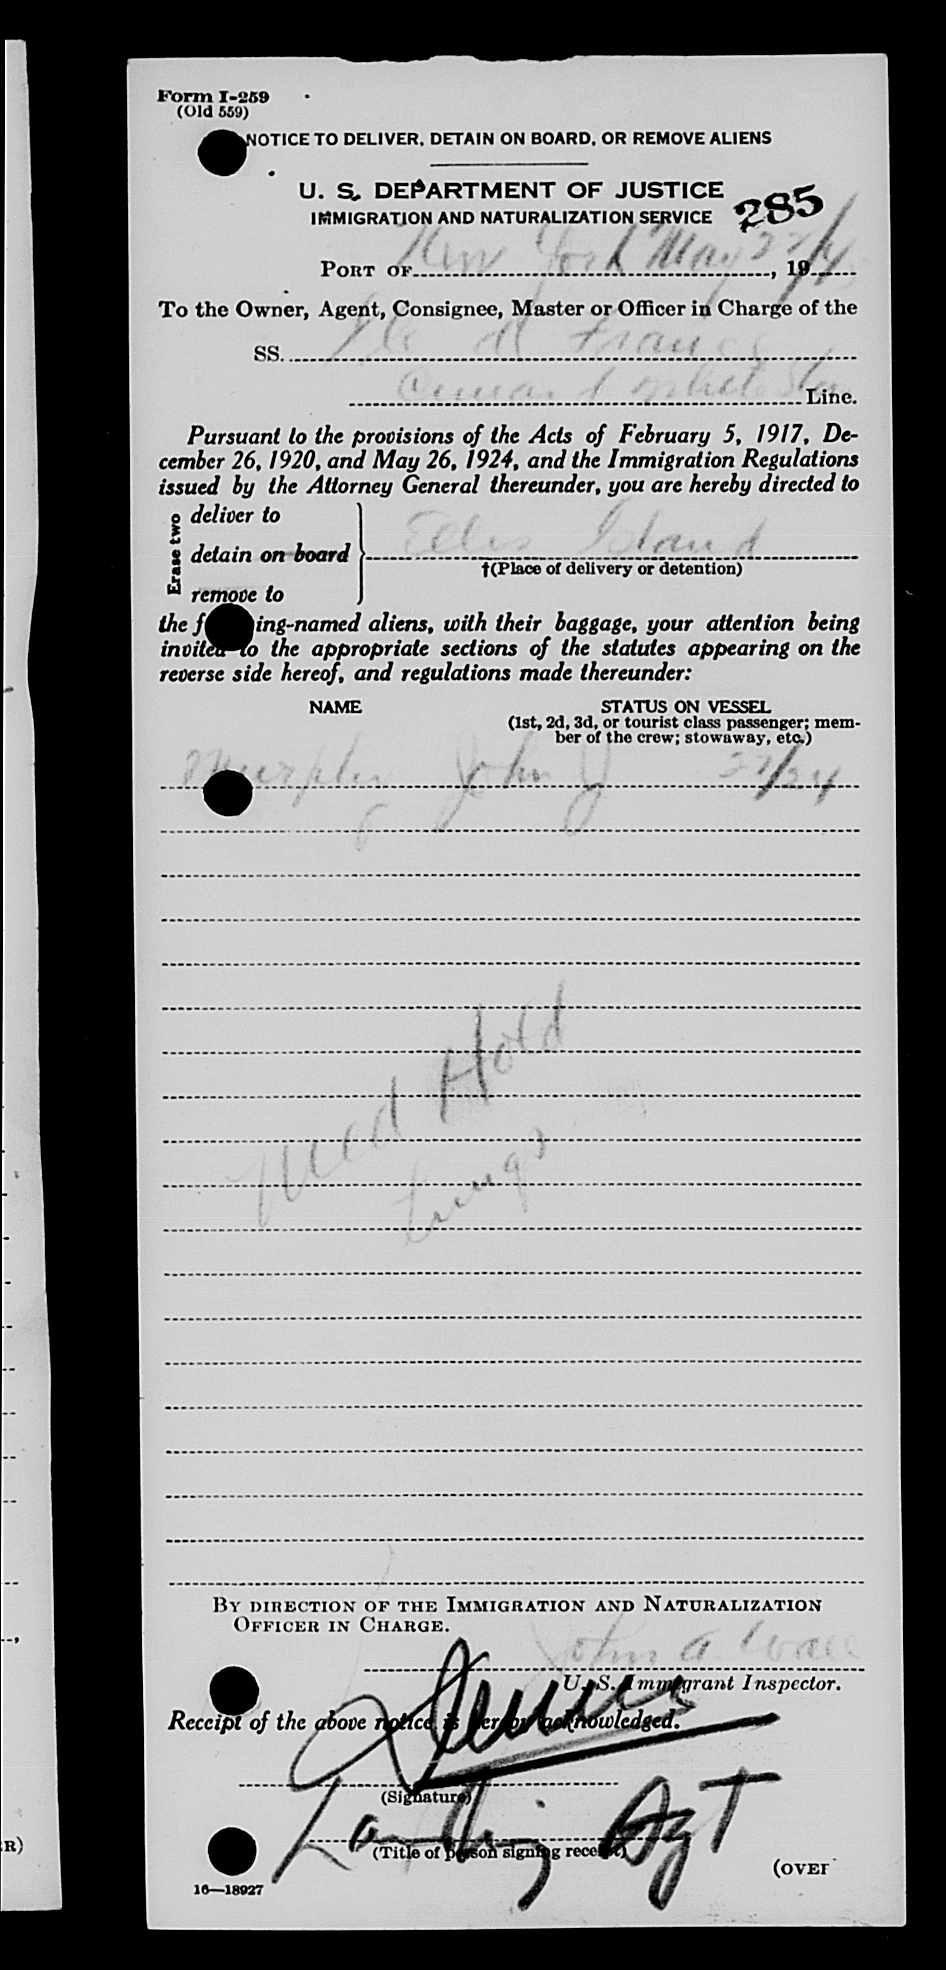 Form I-259
(Old 559)
NOTICE TO DELIVER, DETAIN ON BOARD, OR REMOVE ALIENS
U. S. DEPARTMENT OF JUSTICE
IMMIGRATION AND NATURALIZATION SERVICE
285
PORT OF New York May 22, 19
To the Owner, Agent, Consignee, Master or Officer in Charge of the
SS. Ile de France
Cunard White Star Line.
Pursuant to the provisions of the Acts of February 5, 1917, De-
cember 26, 1920, and May 26, 1924, and the Immigration Regulations
issued by the Attorney General thereunder, you are hereby directed to
Erase two
deliver to
detain on board
remove to
Ellis Island
†(Place of delivery or detention)
the f ing-named aliens, with their baggage, your attention being
invited to the appropriate sections of the statutes appearing on the
reverse side hereof, and regulations made thereunder:
NAME STATUS ON VESSEL
(1st, 2d, 3d, or tourist class passenger; mem-
ber of the crew; stowaway, etc.)
Murphy John J 27/24
Med Hold
Lungs
BY DIRECTION OF THE IMMIGRATION AND NATURALIZATION
OFFICER IN CHARGE.
John A. Wall
U. S. Immigrant Inspector.
Receipt of the above notice is hereby acknowledged.
(Signature)
Landing Agt
(Title of person signing receipt)
(OVER
16—18927
R)